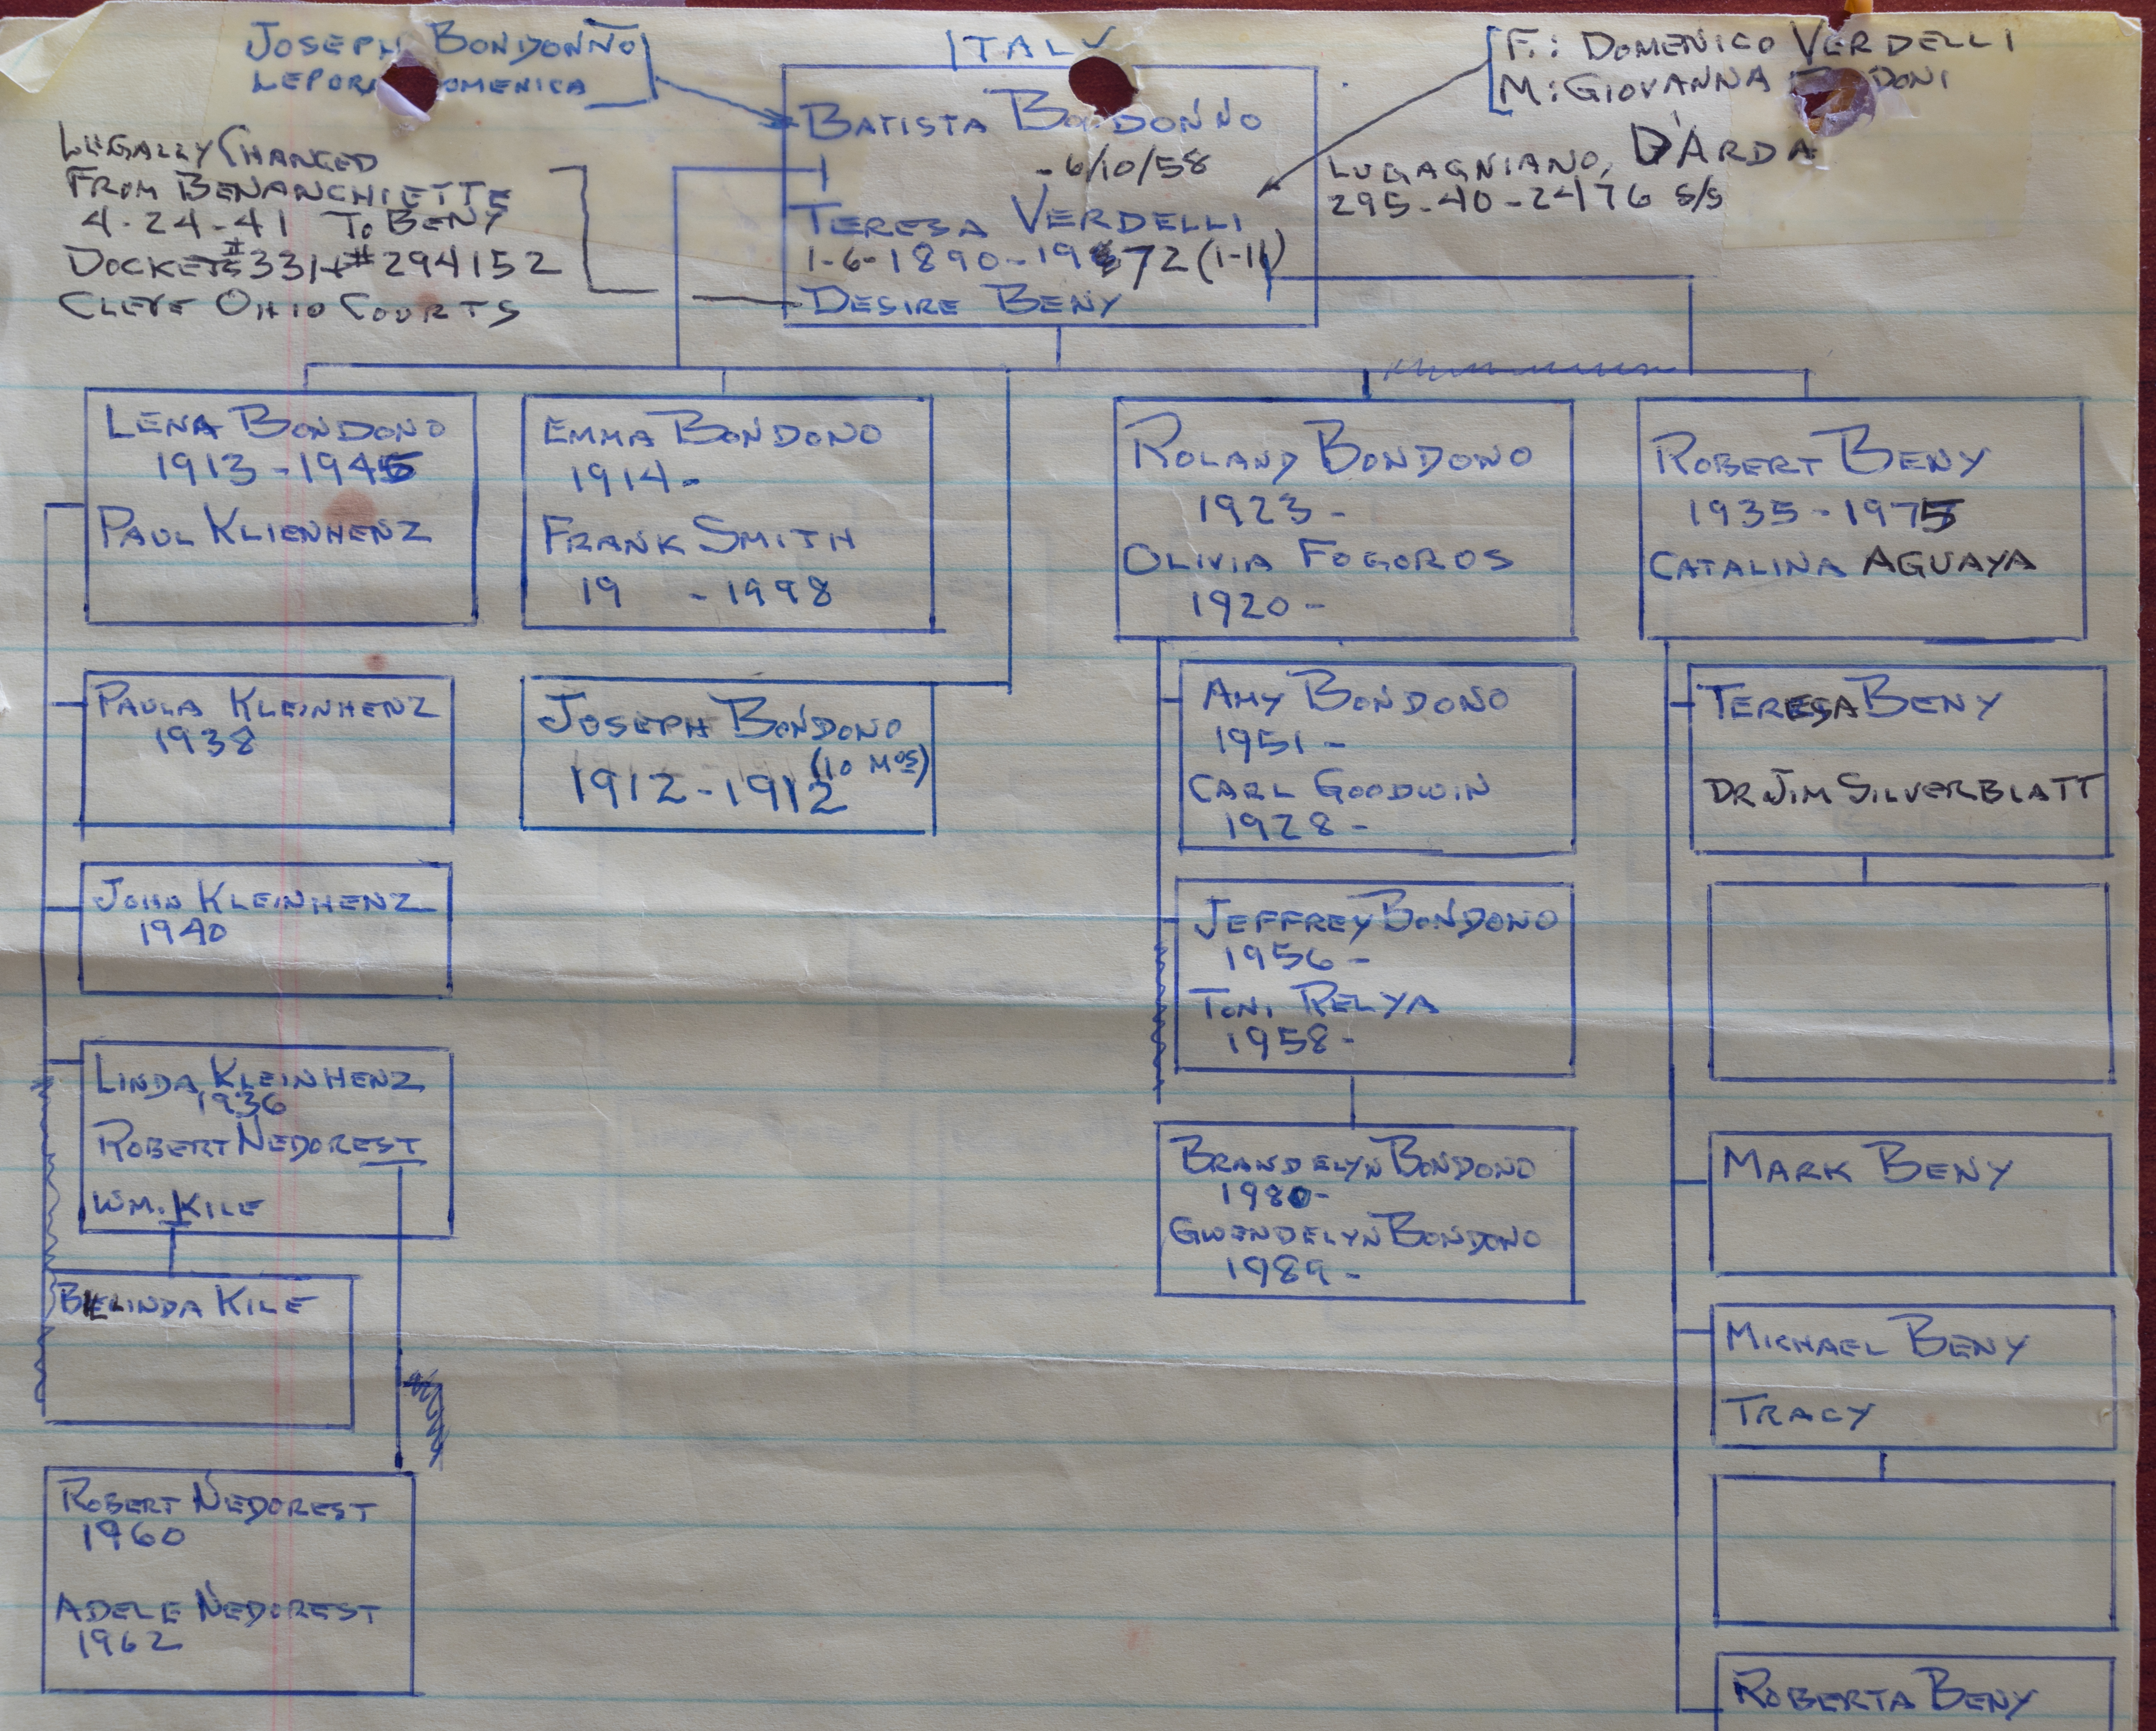 JOSEPH BONDONNO
LEPORA DOMENICA
ITALY
F.: DOMENICO VERDELLI
M: GIOVANNA DONI
LUGAGNIANO, D'ARDA
295-40-2476 S/S
LEGALLY CHANGED
FROM BENANCHIETTE
4-24-41 TO BENY
DOCKETS #331+#294152
CLEVE OHIO COURTS
BATISTA BONDONNO
- 6/10/58
TERESA VERDELLI
1-6-1890-1972 (1-11)
DESIRE BENY
LENA BONDONO
1913-1945
PAUL KLIENHENZ
EMMA BONDONO
1914-
FRANK SMITH
19 -1998
ROLAND BONDONO
1923-
OLIVIA FOGOROS
1920-
ROBERT BENY
1935-1975
CATALINA AGUAYA
PAULA KLEINHENZ
1938
JOHN KLEINHENZ
1940
LINDA KLEINHENZ
1936
ROBERT NEDOREST
WM. KILE
BELINDA KILE
ROBERT NEDOREST
1960
ADELE NEDOREST
1962
JOSEPH BONDONO
(10 MOS)
1912-1912
AMY BONDONO
1951-
CARL GOODWIN
1928-
JEFFREY BONDONO
1956-
TONI RELYA
1958-
BRANDELYN BONDONO
1980-
GWENDELYN BONDONO
1989-
TERESA BENY
DR JIM SILVERBLATT
MARK BENY
MICHAEL BENY
TRACY
ROBERTA BENY